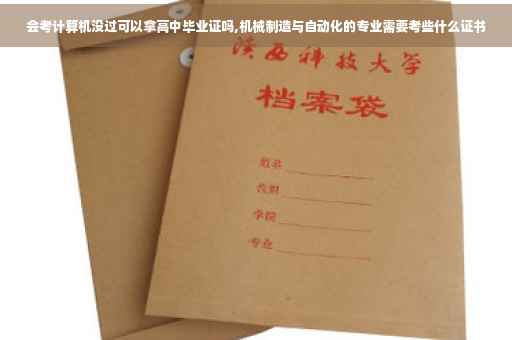 会考计算机没过可以拿高中毕业证吗,机械制造与自动化的专业需要考些什么证书
陕西科技大学
档案袋
学院
专业